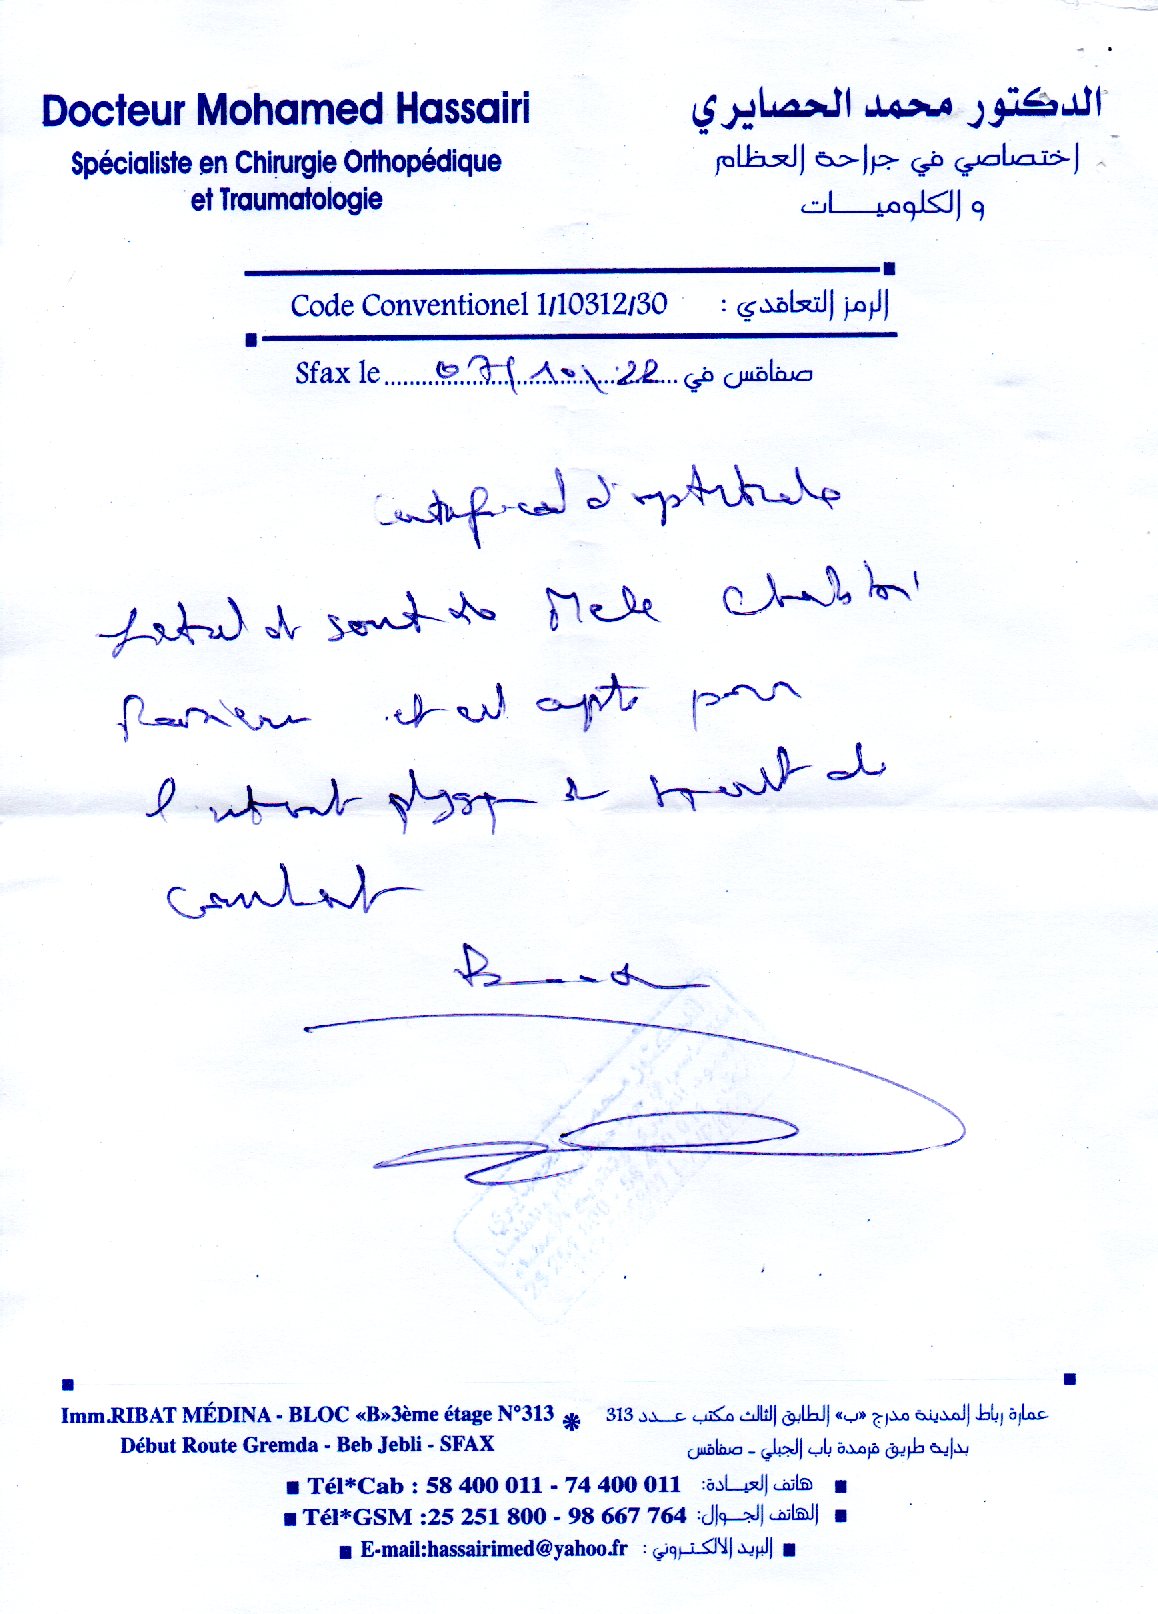 Docteur Mohamed Hassairi
Spécialiste en Chirurgie Orthopédique
et Traumatologie
الدكتور محمد الحصايري
إختصاصي في جراحة العظام
و الكلوميـــات
Code Conventionel 1/10312/30 الرمز التعاقدي :
Sfax le 07/10/22 صفاقس في
d'aptitude
L'état de santé de Melle
et est apte pour
l'entraînt physique de sport de
combat
Imm.RIBAT MÉDINA - BLOC «B»3ème étage N°313
Début Route Gremda - Beb Jebli - SFAX
عمارة رباط المدينة مدرج «ب» الطابق الثالث مكتب عــدد 313
بداية طريق قرمدة باب الجبلي - صفاقس
Tél*Cab : 58 400 011 - 74 400 011 هاتف العيــادة:
Tél*GSM :25 251 800 - 98 667 764 الهاتف الجــوال:
E-mail:hassairimed@yahoo.fr البريد الالكتـروني :